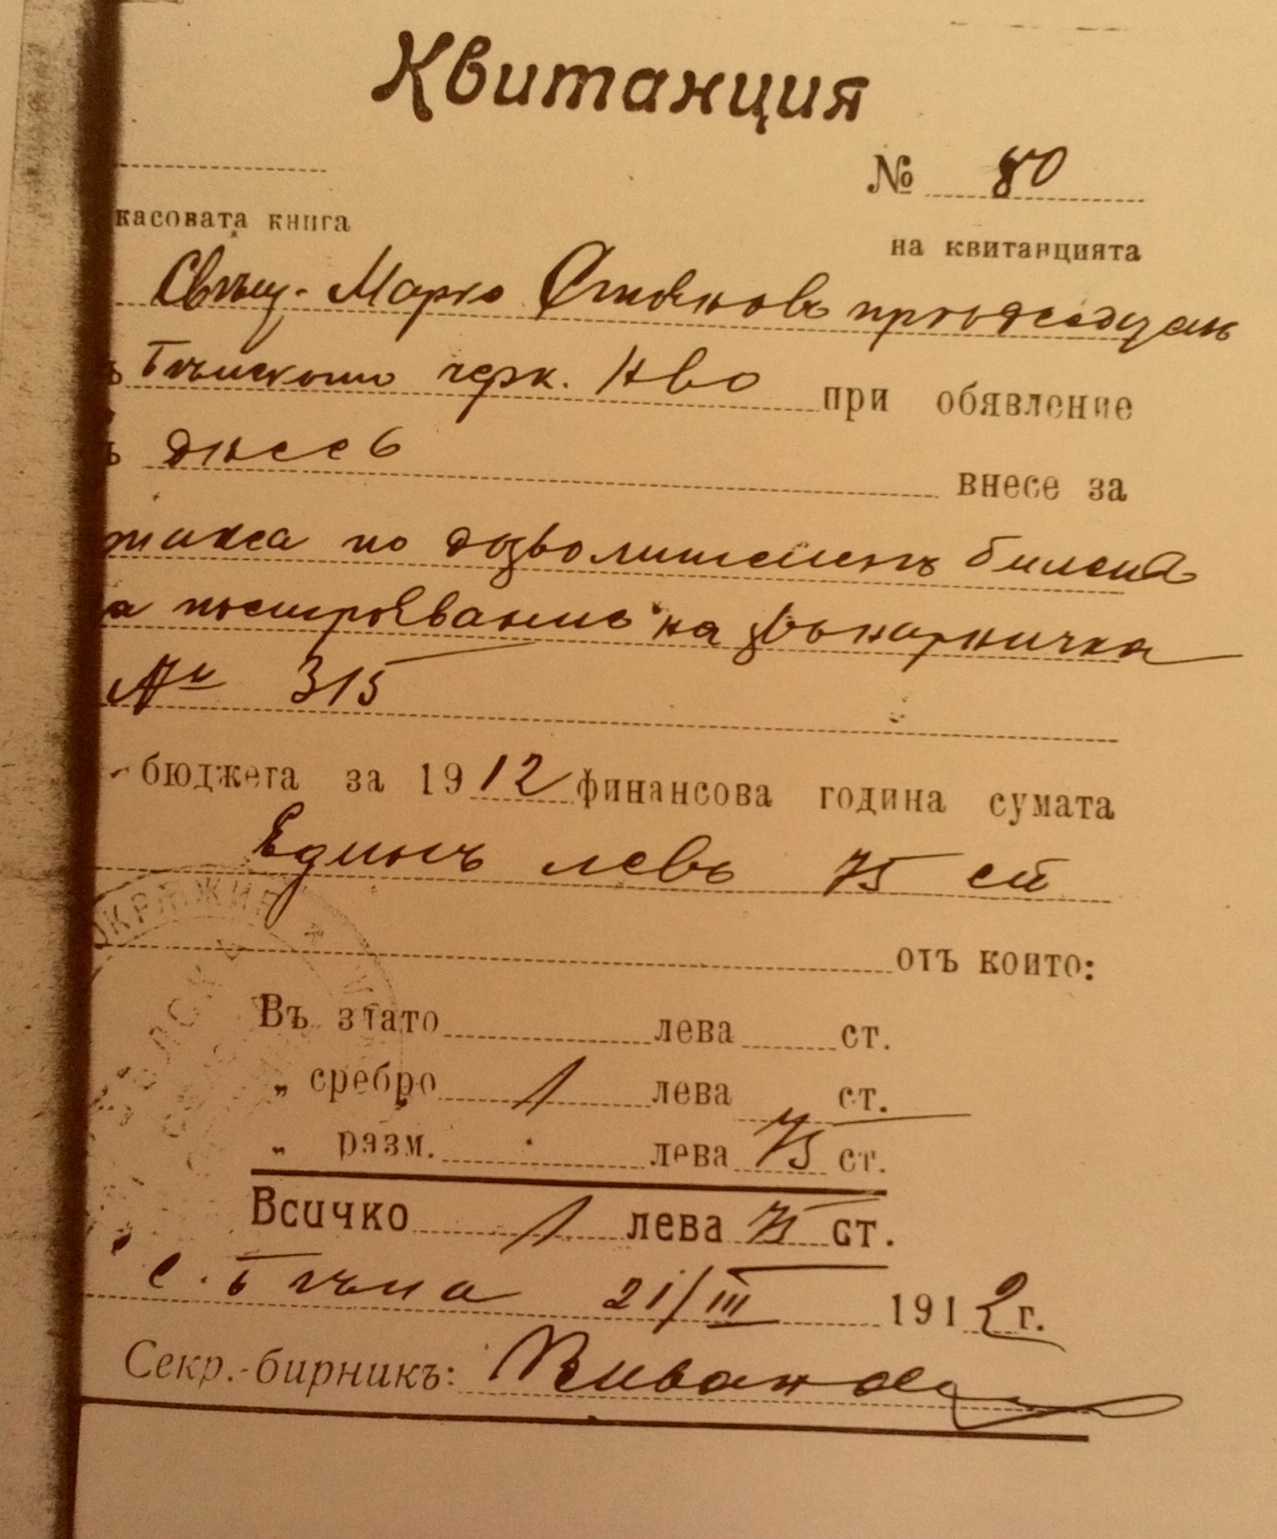 Квитанция
№ 80
касовата книга
на квитанцията
Свѣщ. Марко Стояновъ прѣдседат
черк. Н-во при обявление
днесь
внесе за
такса по дозволителенъ билетъ
а построявание на звънарничка
№ 315
бюджета за 1912 финансова година сумата
Единъ левъ 75 ст
отъ които:
Въ злато лева ст.
„ сребро 1 лева ст.
„ разм. лева 75 ст.
Всичко 1 лева 75 ст.
с. 21/III 1912 г.
Секр.-бирникъ: